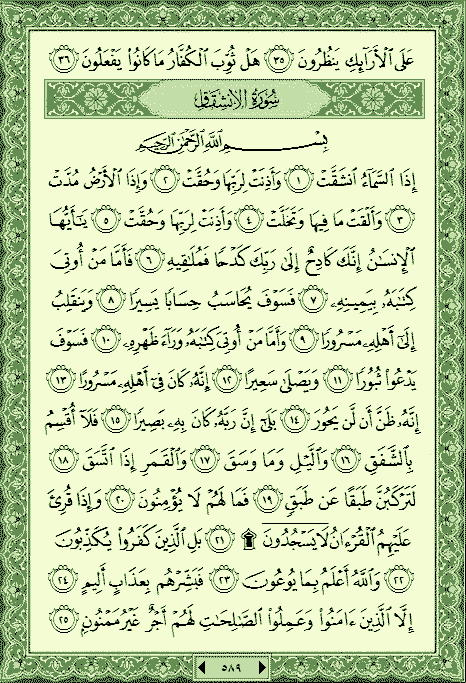 عَلَى ٱلْأَرَآئِكِ يَنظُرُونَ ٣٥ هَلْ ثُوِّبَ ٱلْكُفَّارُ مَا كَانُوا۟ يَفْعَلُونَ ٣٦
سُورَةُ الانشِقَاقِ
بِسْمِ ٱللَّهِ ٱلرَّحْمَٰنِ ٱلرَّحِيمِ
إِذَا ٱلسَّمَآءُ ٱنشَقَّتْ ١ وَأَذِنَتْ لِرَبِّهَا وَحُقَّتْ ٢ وَإِذَا ٱلْأَرْضُ مُدَّتْ
٣ وَأَلْقَتْ مَا فِيهَا وَتَخَلَّتْ ٤ وَأَذِنَتْ لِرَبِّهَا وَحُقَّتْ ٥ يَٰٓأَيُّهَا
ٱلْإِنسَٰنُ إِنَّكَ كَادِحٌ إِلَىٰ رَبِّكَ كَدْحًا فَمُلَٰقِيهِ ٦ فَأَمَّا مَنْ أُوتِىَ
كِتَٰبَهُۥ بِيَمِينِهِۦ ٧ فَسَوْفَ يُحَاسَبُ حِسَابًا يَسِيرًا ٨ وَيَنقَلِبُ
إِلَىٰٓ أَهْلِهِۦ مَسْرُورًا ٩ وَأَمَّا مَنْ أُوتِىَ كِتَٰبَهُۥ وَرَآءَ ظَهْرِهِۦ ١٠ فَسَوْفَ
يَدْعُوا۟ ثُبُورًا ١١ وَيَصْلَىٰ سَعِيرًا ١٢ إِنَّهُۥ كَانَ فِىٓ أَهْلِهِۦ مَسْرُورًا ١٣
إِنَّهُۥ ظَنَّ أَن لَّن يَحُورَ ١٤ بَلَىٰٓ إِنَّ رَبَّهُۥ كَانَ بِهِۦ بَصِيرًا ١٥ فَلَآ أُقْسِمُ
بِٱلشَّفَقِ ١٦ وَٱلَّيْلِ وَمَا وَسَقَ ١٧ وَٱلْقَمَرِ إِذَا ٱتَّسَقَ ١٨
لَتَرْكَبُنَّ طَبَقًا عَن طَبَقٍ ١٩ فَمَا لَهُمْ لَا يُؤْمِنُونَ ٢٠ وَإِذَا قُرِئَ
عَلَيْهِمُ ٱلْقُرْءَانُ لَا يَسْجُدُونَ ۩ ٢١ بَلِ ٱلَّذِينَ كَفَرُوا۟ يُكَذِّبُونَ
٢٢ وَٱللَّهُ أَعْلَمُ بِمَا يُوعُونَ ٢٣ فَبَشِّرْهُم بِعَذَابٍ أَلِيمٍ ٢٤
إِلَّا ٱلَّذِينَ ءَامَنُوا۟ وَعَمِلُوا۟ ٱلصَّٰلِحَٰتِ لَهُمْ أَجْرٌ غَيْرُ مَمْنُونٍۭ ٢٥
٥٨٩